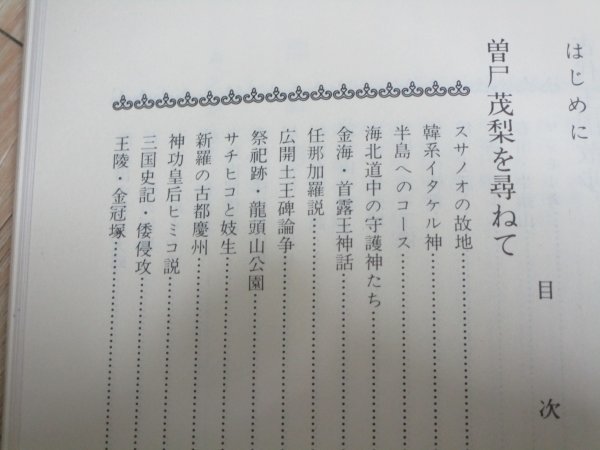 はじめに
目次
曽尸茂梨を尋ねて
スサノオの故地
韓系イタケル神
半島へのコース
海北道中の守護神たち
金海・首露王神話
任那加羅説
広開土王碑論争
祭祀跡・龍頭山公園
サチヒコと妓生
新羅の古都慶州
神功皇后ヒミコ説
三国史記・倭侵攻
王陵・金冠塚